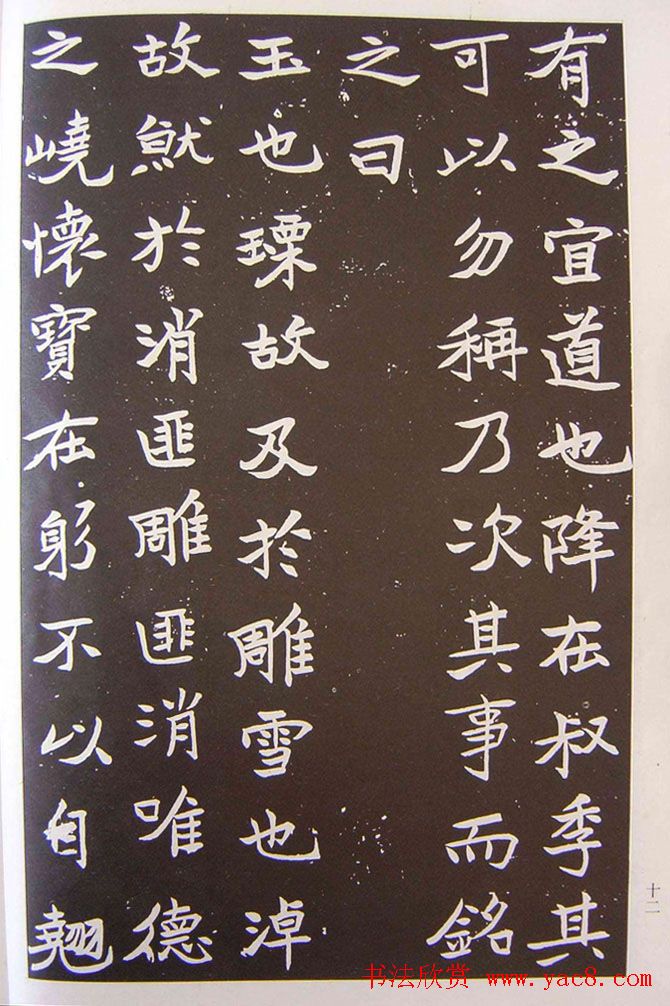 有之宜道也降在叔季其
可以勿稱乃次其事而銘
之曰
玉也瑮故及於雕雪也淖
故就於消匪雕匪消唯德
之嶢懷寶在躬不以自翹
十二
书法欣赏 www.yac8.com